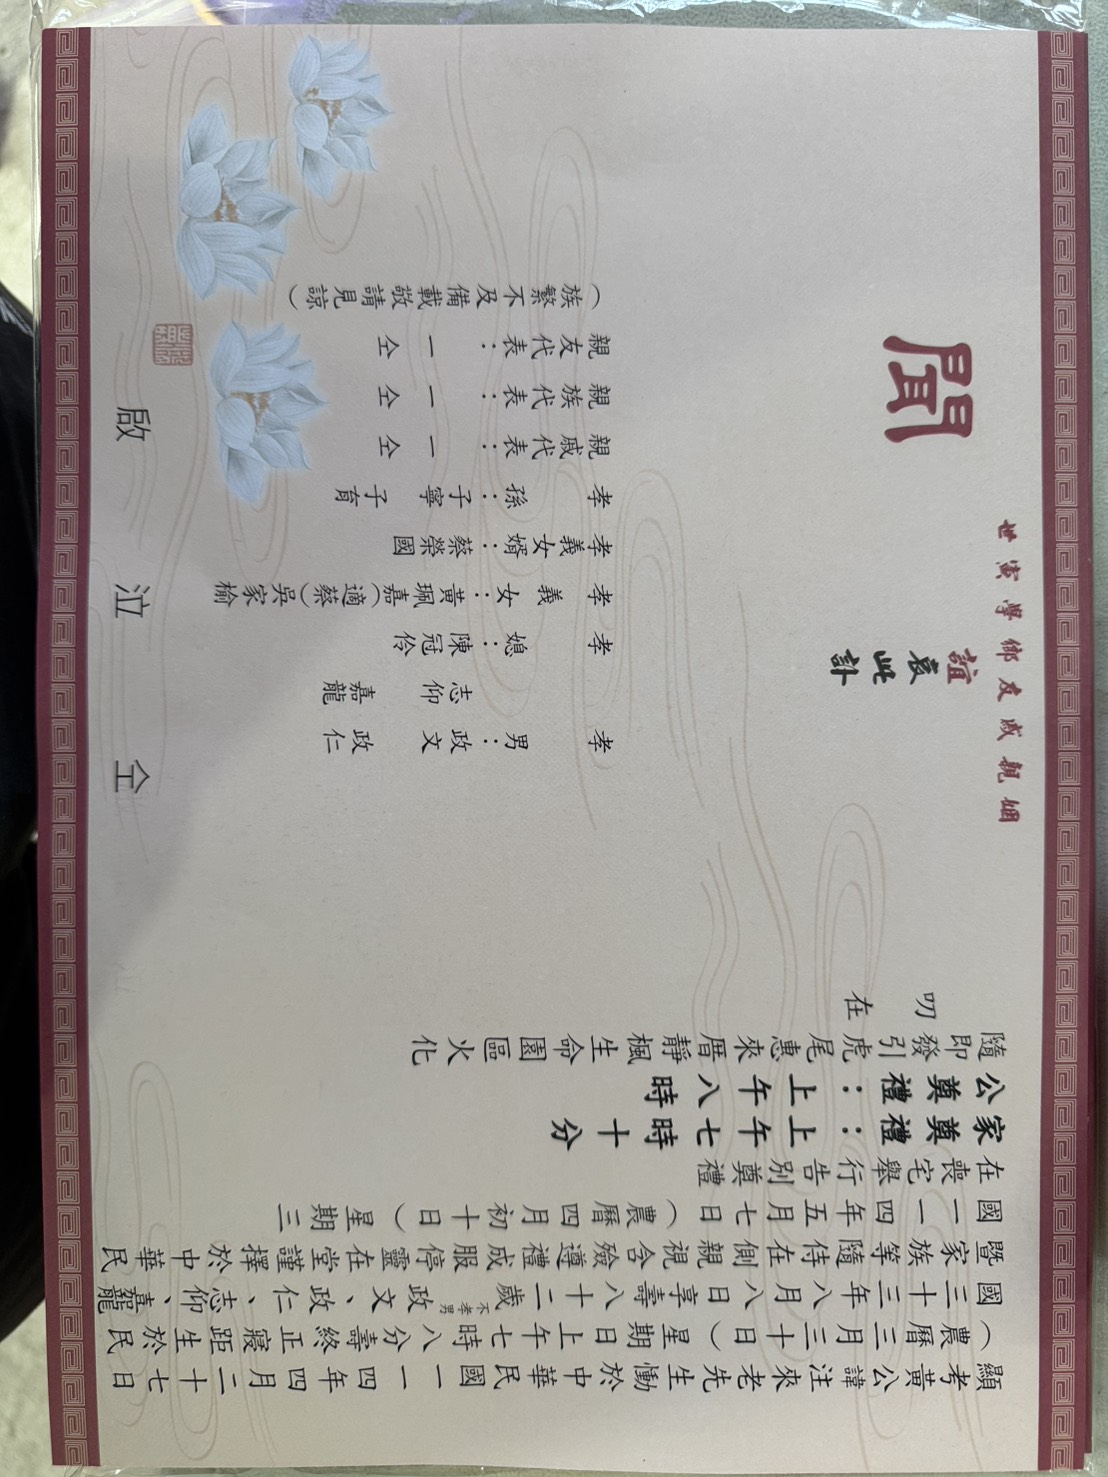 顯考黃公諱注來老先生慟於中華民國一一四年四月二十七日
（農曆三月三十日）星期日上午七時八分壽終正寢距生於民
國三十三年八月八日享壽八十二歲不孝男政文、政仁、志仰、嘉龍
暨家族等隨侍在側親視含殮遵禮成服停靈在堂謹擇於中華民
國一一四年五月七日（農曆四月初十日）星期三
在喪宅舉行告別奠禮
家奠禮：上午七時十分
公奠禮：上午八時
隨即發引虎尾惠來厝靜楓生命園區火化
叨
在
姻親戚友鄉學寅世
誼哀此訃
聞
孝男：政文 政仁
志仰 嘉龍
孝媳：陳冠伶
孝義女：黃珮嘉（適蔡）吳家榆
孝義女婿：蔡榮國
孝孫：子寧 子育
親戚代表：一仝
親族代表：一仝
親友代表：一仝
（族繁不及備載敬請見諒）
仝泣啟